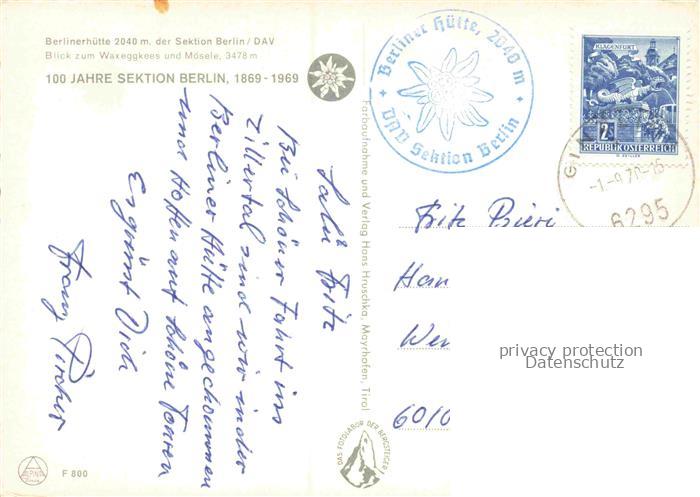 Berlinerhütte 2040 m. der Sektion Berlin / DAV
Blick zum Waxeggkees und Mösele, 3478 m
100 JAHRE SEKTION BERLIN, 1869 - 1969
Berliner Hütte, 2040 m
DAV Sektion Berlin
KLAGENFURT
2S
REPUBLIK ÖSTERREICH
-1.-9.70-16
6295
Salü Fritz
Bei schöner Fahrt ins
Zillertal sind wir in der
Berliner Hütte angekommen
und Hoffen auf schöne Touren
Es grüsst Dich
Franz Pircher
Farbaufnahme und Verlag Hans Hruschka, Mayrhofen, Tirol
Fritz Bieri
Han
Wer
6010
privacy protection
Datenschutz
DAS FOTOLABOR DER BERGSTEIGER
F 800